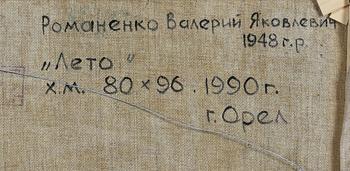 Романенко Валерий Яковлевич
1948 г.р.
„Лето"
х.м. 80 × 96. 1990 г.
г. Орел